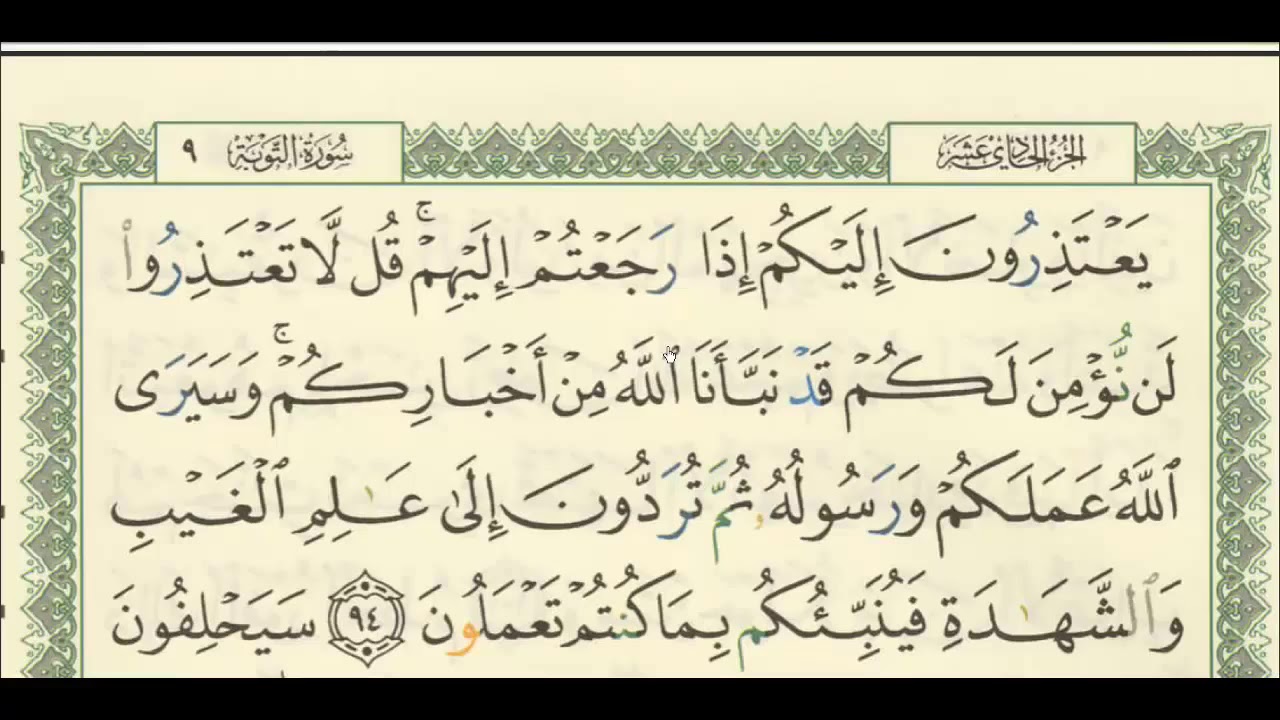 الجُزْءُ الحَادِي عَشَرَ
سُورَةُ التَّوْبَةِ ٩
يَعْتَذِرُونَ إِلَيْكُمْ إِذَا رَجَعْتُمْ إِلَيْهِمْ ۚ قُل لَّا تَعْتَذِرُوا۟
لَن نُّؤْمِنَ لَكُمْ قَدْ نَبَّأَنَا ٱللَّهُ مِنْ أَخْبَارِكُمْ ۚ وَسَيَرَى
ٱللَّهُ عَمَلَكُمْ وَرَسُولُهُۥ ثُمَّ تُرَدُّونَ إِلَىٰ عَـٰلِمِ ٱلْغَيْبِ
وَٱلشَّهَـٰدَةِ فَيُنَبِّئُكُم بِمَا كُنتُمْ تَعْمَلُونَ ٩٤ سَيَحْلِفُونَ